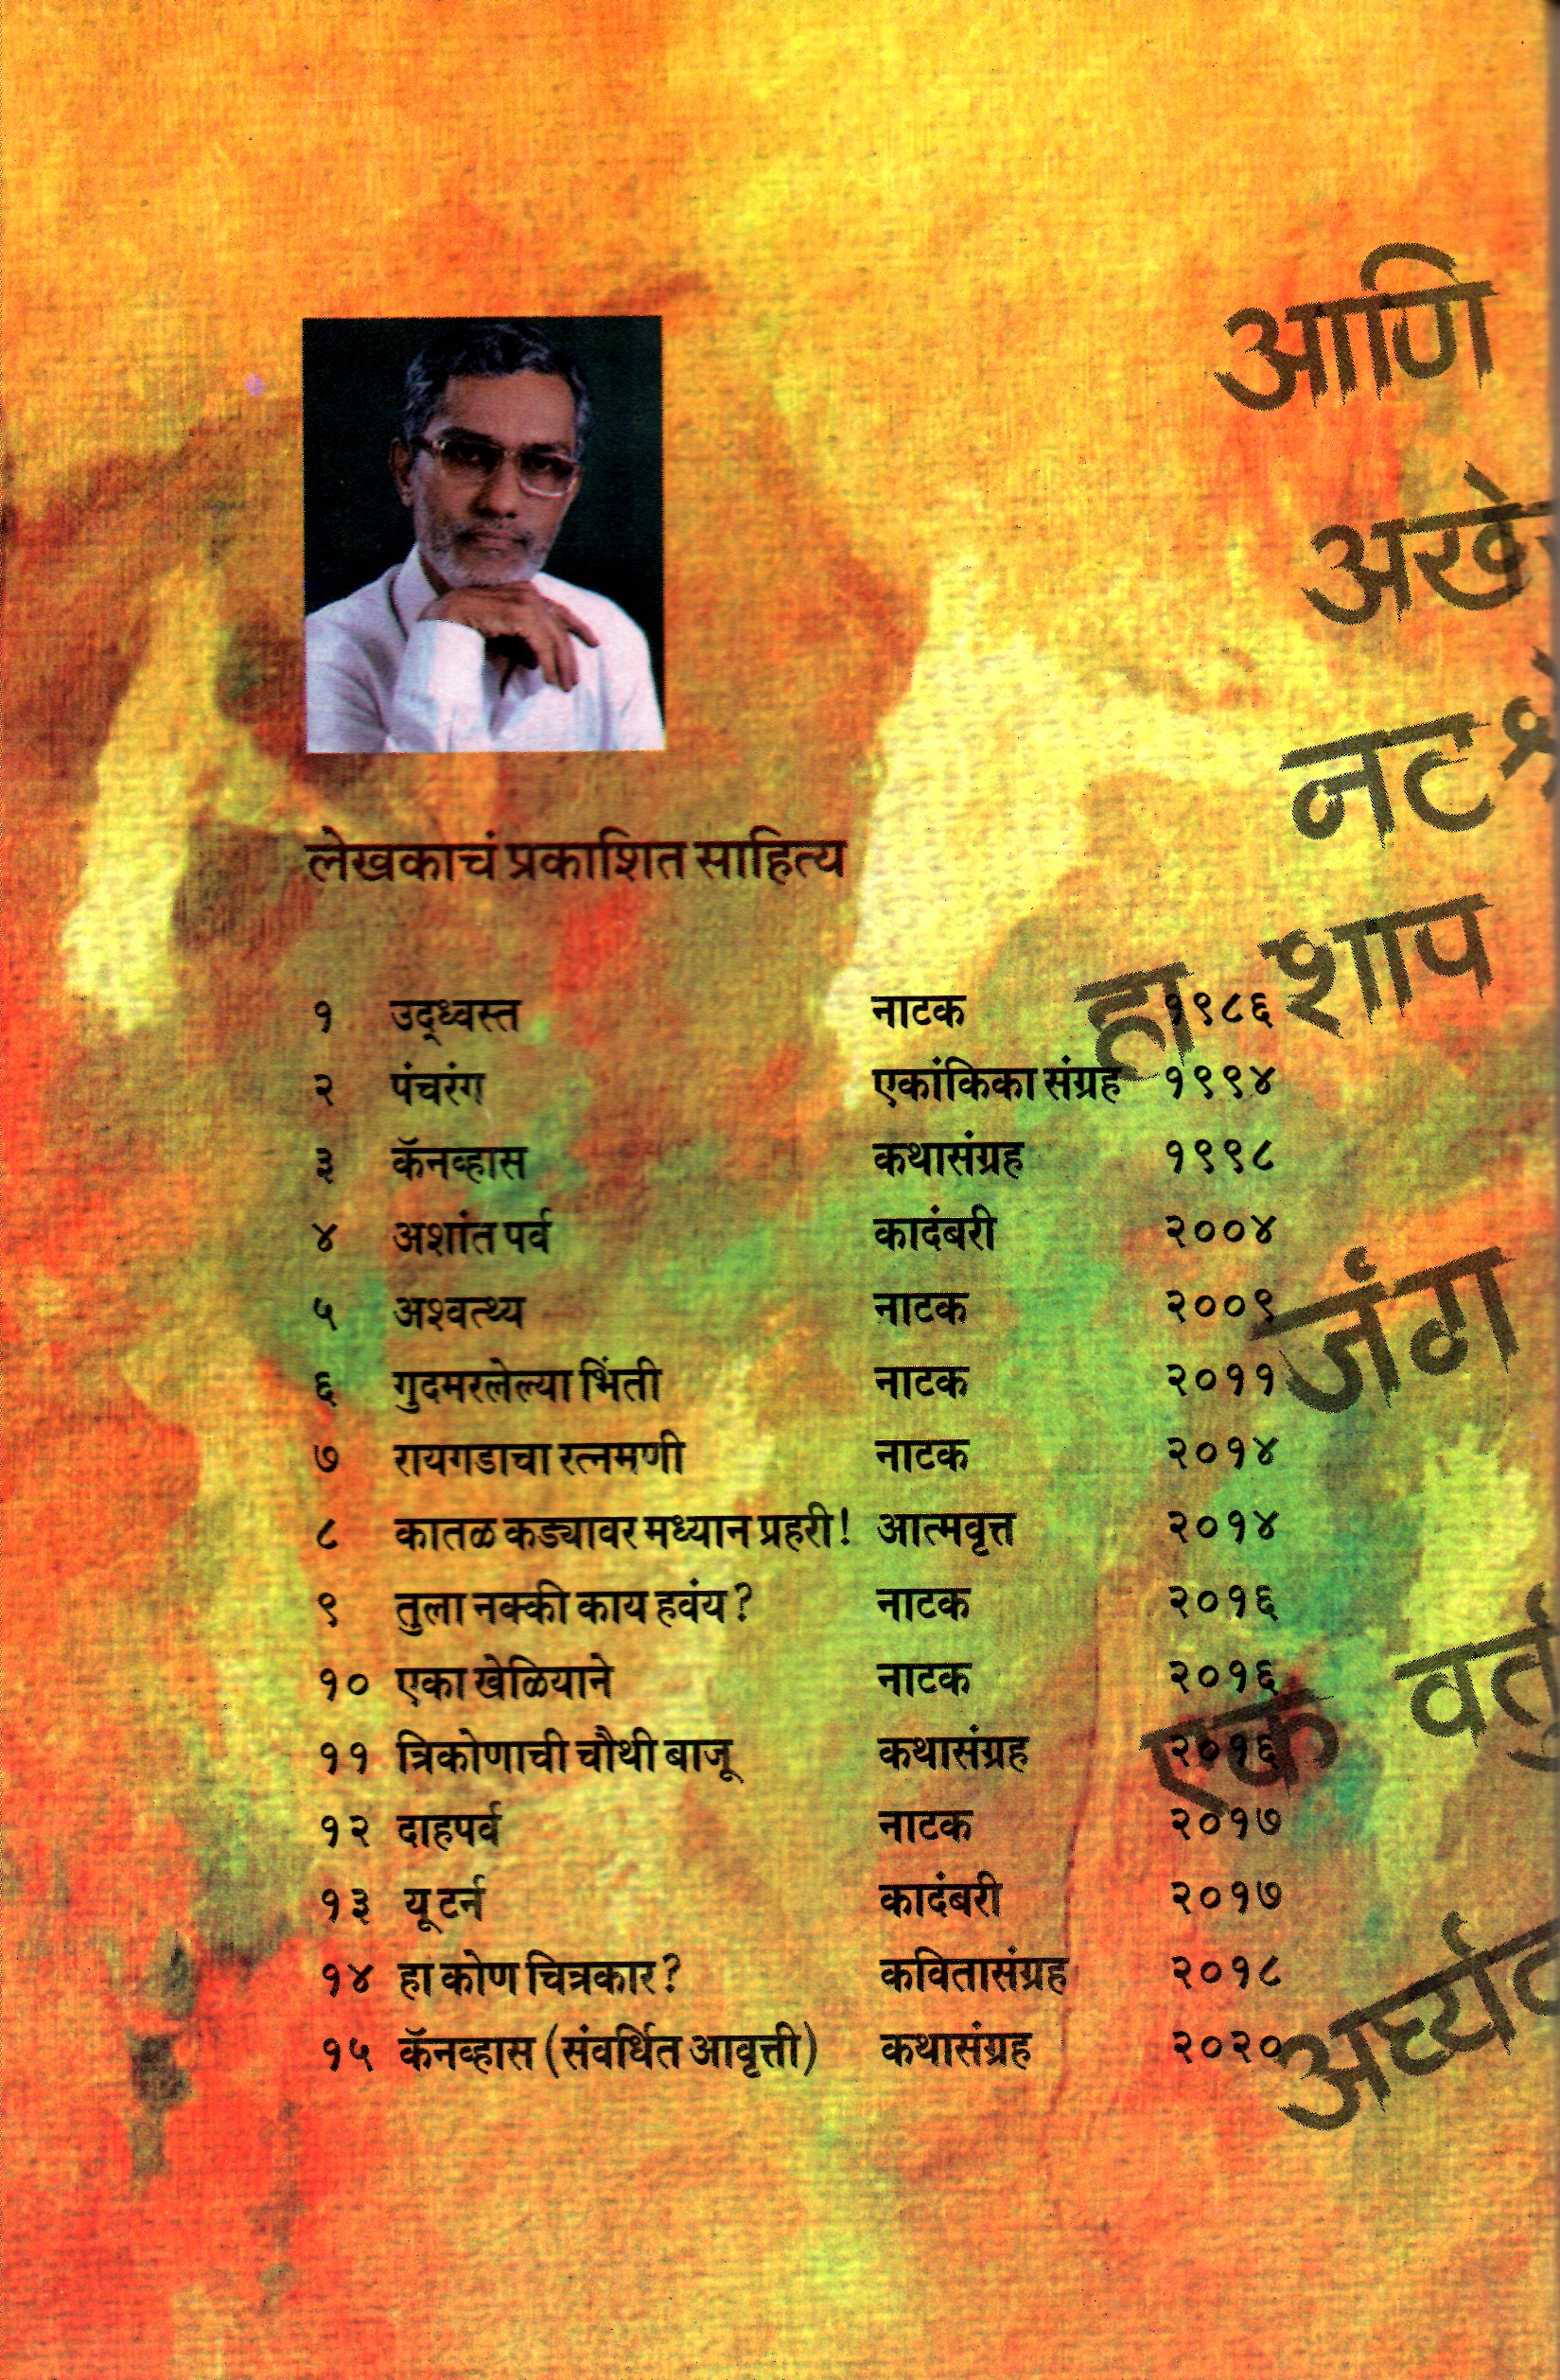 आणि
नट
हा शाप
जंग
एक
लेखकाचं प्रकाशित साहित्य
१ उद्ध्वस्त नाटक १९८६
२ पंचरंग एकांकिका संग्रह १९९४
३ कॅनव्हास कथासंग्रह १९९८
४ अशांत पर्व कादंबरी २००४
५ अश्वत्थ्य नाटक २००९
६ गुदमरलेल्या भिंती नाटक २०११
७ रायगडाचा रत्नमणी नाटक २०१४
८ कातळ कड्यावर मध्यान प्रहरी! आत्मवृत्त २०१४
९ तुला नक्की काय हवंय? नाटक २०१६
१० एका खेळियाने नाटक २०१६
११ त्रिकोणाची चौथी बाजू कथासंग्रह २०१६
१२ दाहपर्व नाटक २०१७
१३ यू टर्न कादंबरी २०१७
१४ हा कोण चित्रकार? कवितासंग्रह २०१८
१५ कॅनव्हास (संवर्धित आवृत्ती) कथासंग्रह २०२०